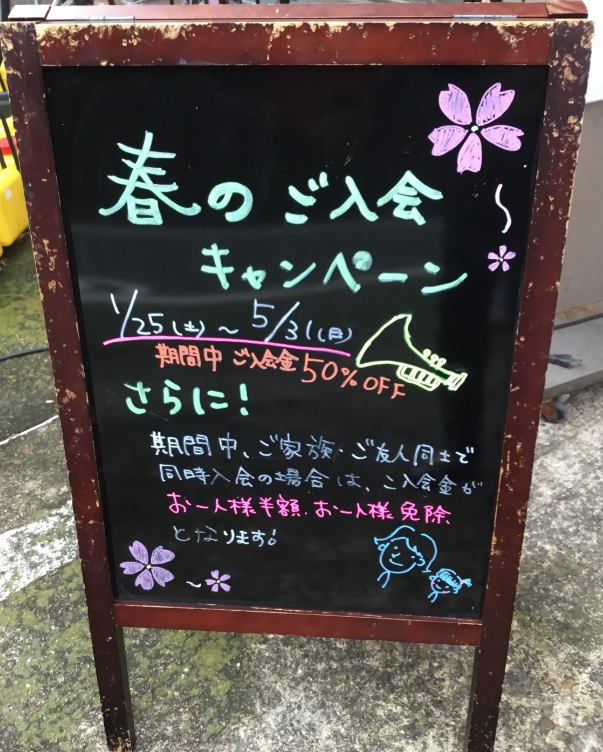 春のご入会
キャンペーン
1/25(土)~5/31(日)
期間中 ご入会金50%OFF
さらに!
期間中、ご家族・ご友人同士で
同時入会の場合は、ご入会金が
お一人様半額、お一人様免除
となります!